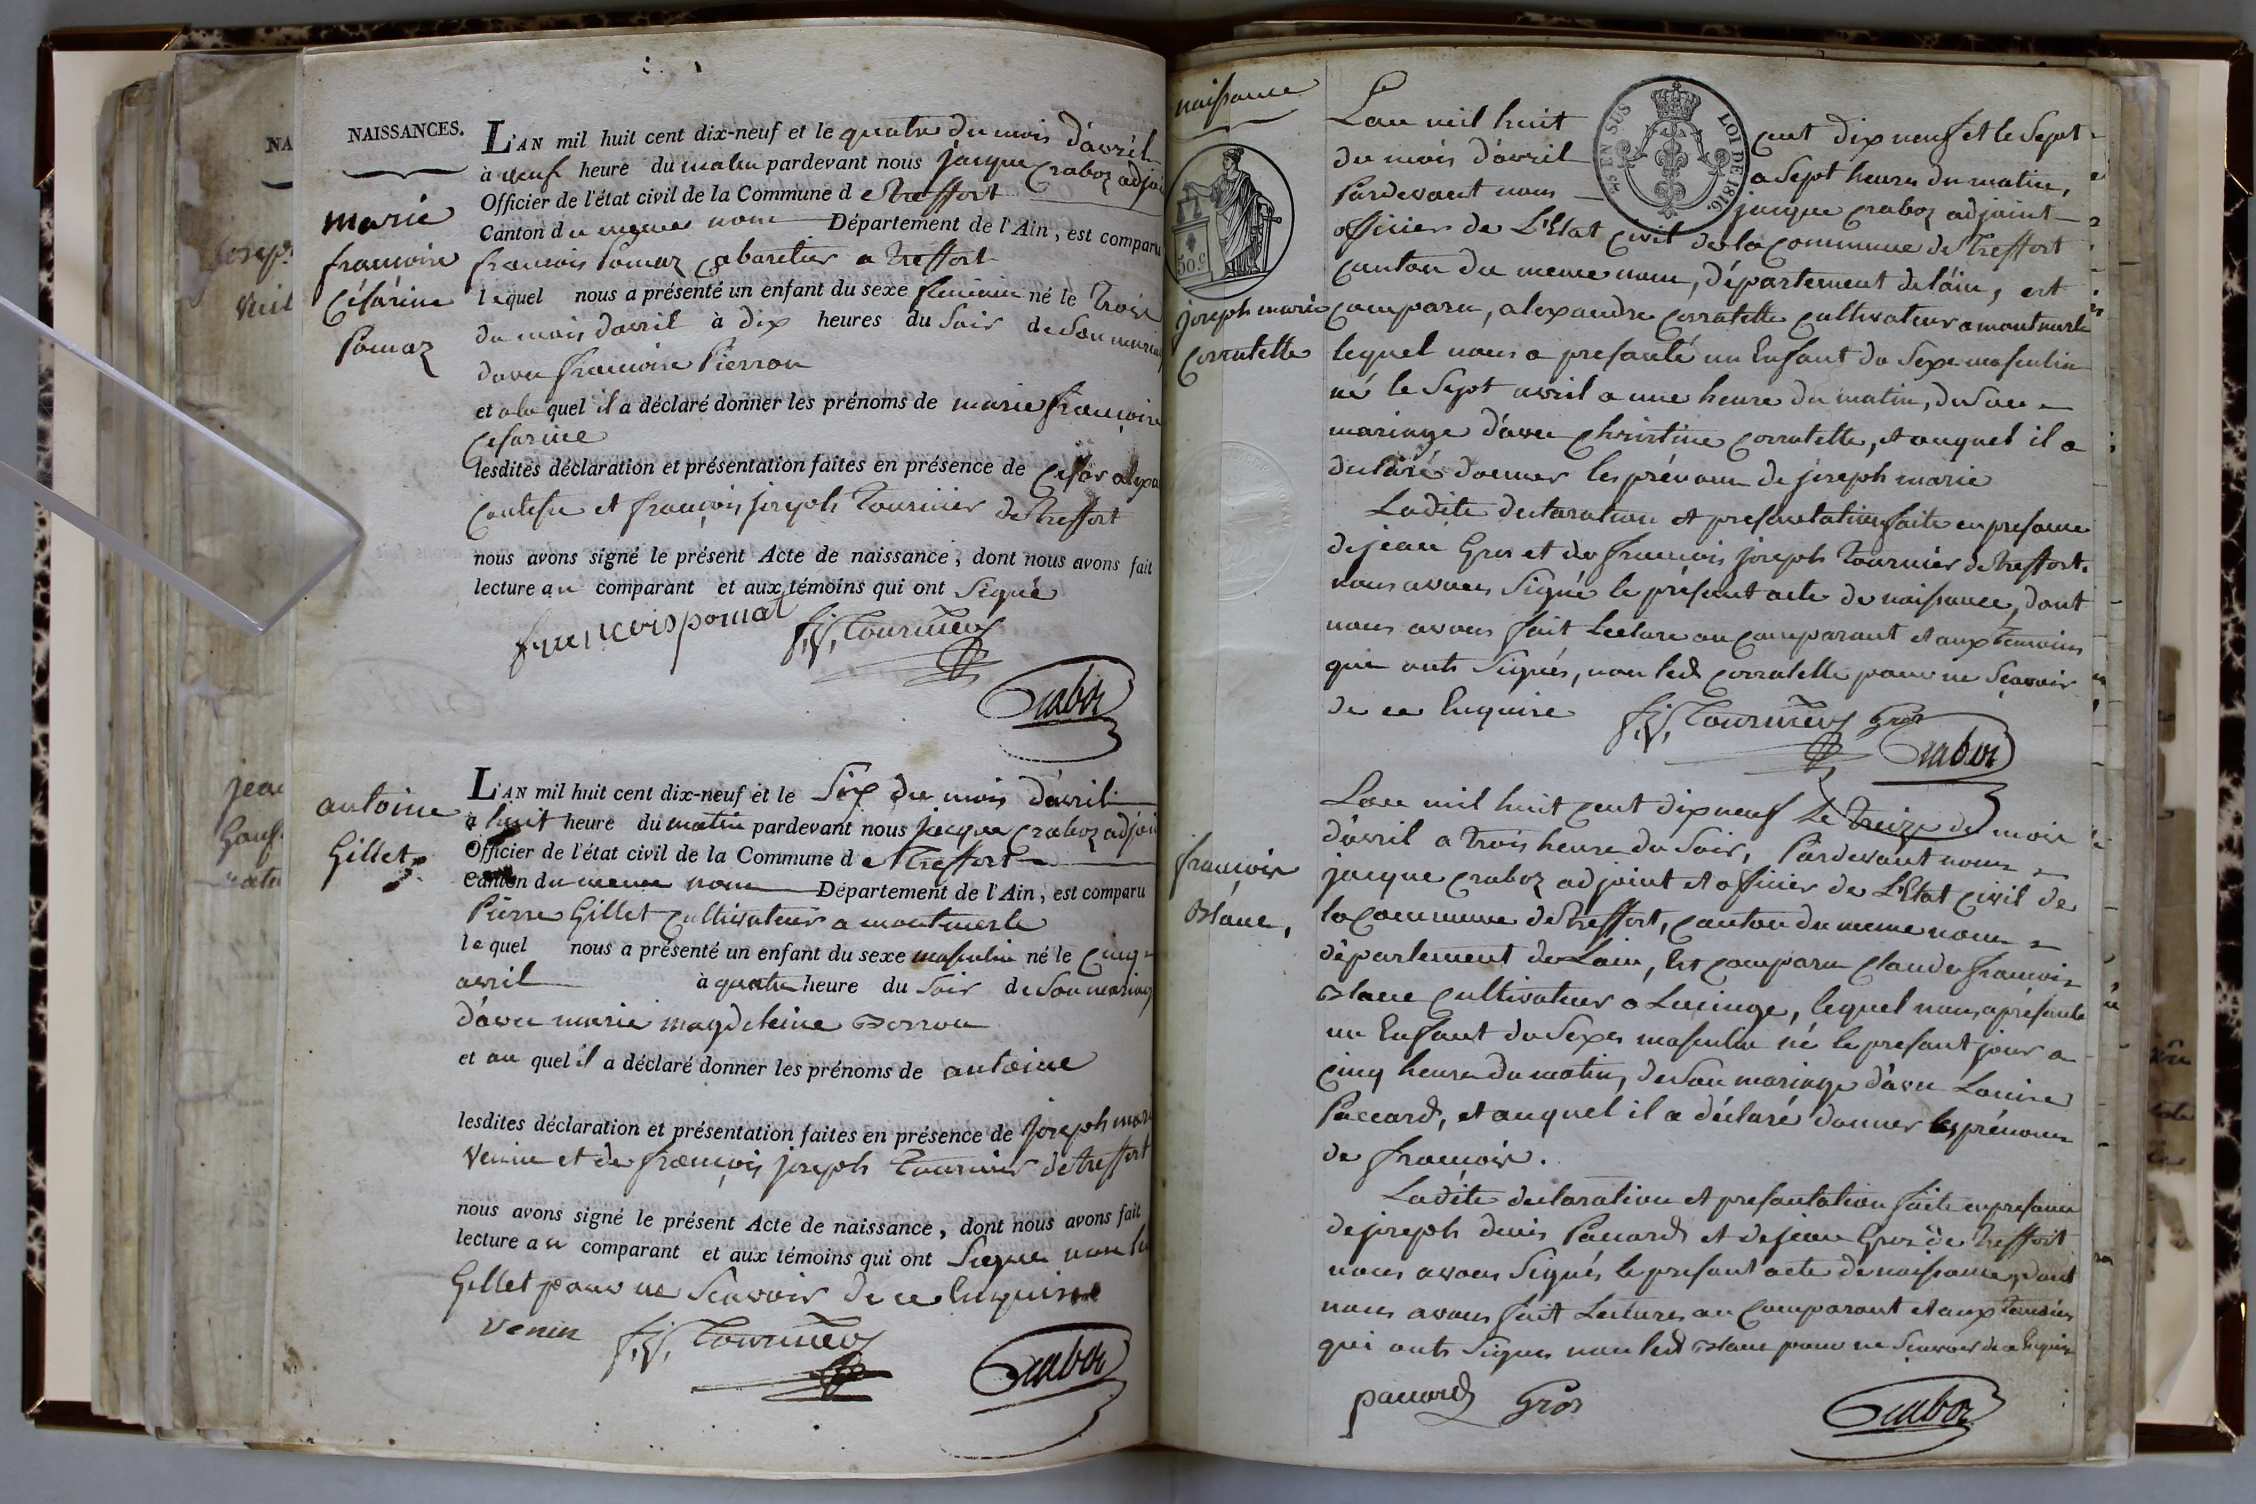 NAISSANCES.
L'AN mil huit cent dix-neuf et le quatre du mois d'avril
à neuf heure du matin pardevant nous jacque Craboz adjoi
Officier de l'état civil de la Commune d e Treffort
Canton du meme nom Département de l'Ain, est comparu
francois Pomaz cabaretier a Treffort
lequel nous a présenté un enfant du sexe feminin né le Trois
du mois davril à dix heures du Soir de son mariag
davec francoise Pierron
et a la quel il a déclaré donner les prénoms de marie francoise
Cesarine
lesdites déclaration et présentation faites en présence de Cesar alexa
et françois joseph Tournier de treffort
nous avons signé le présent Acte de naissance, dont nous avons fait
lecture au comparant et aux témoins qui ont Signé
francois pomat f.j. Tournier
Craboz
marie
francoise
Césarine
Pomaz
L'AN mil huit cent dix-neuf et le Six du mois d'avril
à huit heure du matin pardevant nous jacque Craboz adjoi
Officier de l'état civil de la Commune d e Treffort
Canton du meme nom Département de l'Ain, est comparu
Pierre Gillet Cultivateur a montmerle
lequel nous a présenté un enfant du sexe masculin né le Cinq
avril à quatre heure du Soir de Son mariag
d'avec marie magdeleine Perron
et au quel il a déclaré donner les prénoms de antoine
lesdites déclaration et présentation faites en présence de joseph mar
Venin et de françois joseph Tournier de treffort
nous avons signé le présent Acte de naissance, dont nous avons fait
lecture au comparant et aux témoins qui ont Signe non le
Gillet pour ne Scavoir de ce Enquis
venin f.j. Tournier
Craboz
antoine
Gillet
naissance
EN SUS
LOI DE 1816.
50 c
Lan mil huit cent dix neuf et le Sept
du mois d'avril a Sept heures du matin,
Pardevant nous jacque Craboz adjoint
officier de L'Etat Civil de la Commune de Treffort
Canton du meme nom, département de lain, est
comparu, alexandre Corratelle Cultivateur a montmerle
lequel nous a presanté un Enfant du Sexe masculin
né le Sept avril a une heure du matin, de Son
mariage d'avec Christine Corratelle, et auquel il a
declaré donner les prénom de joseph marie
Ladite declaration et presantation faite en presance
de jean Gros et de francois joseph Tournier de treffort.
nous avons Signé le présant acte de naissance, dont
nous avons fait Lecture au Comparant et aux temoins
qui onts Signés, non led Corratelle pour ne Scavoir
de ce Enquis f.j. Tournier Gros
Craboz
joseph marie
Corratelle
Lan mil huit cent dix neuf le treize du mois
d'avril a trois heure du Soir, Pardevant nous
jacque Craboz adjoint et officier de L'Etat Civil de
la Commune de Treffort, Canton du meme nom
département de Lain, Est Comparu Claude francois
Blanc Cultivateur a Lucinge, lequel nous a présanté
un Enfant du Sexe masculin né le présant jour a
Cinq heure du matin, de Son mariage d'avec Louise
Paccard, et auquel il a déclaré donner les prénoms
de francois.
Ladite declaration et presantation faite en presance
de joseph denis Paccard et de jean Gros de treffort
nous avons Signés le présant acte de naissance, dont
nous avons fait Lecture au Comparant et aux temoins
qui onts Signés non led Blanc pour ne Scavoir de ce Enquis
paccard Gros
Craboz
francois
Blanc,